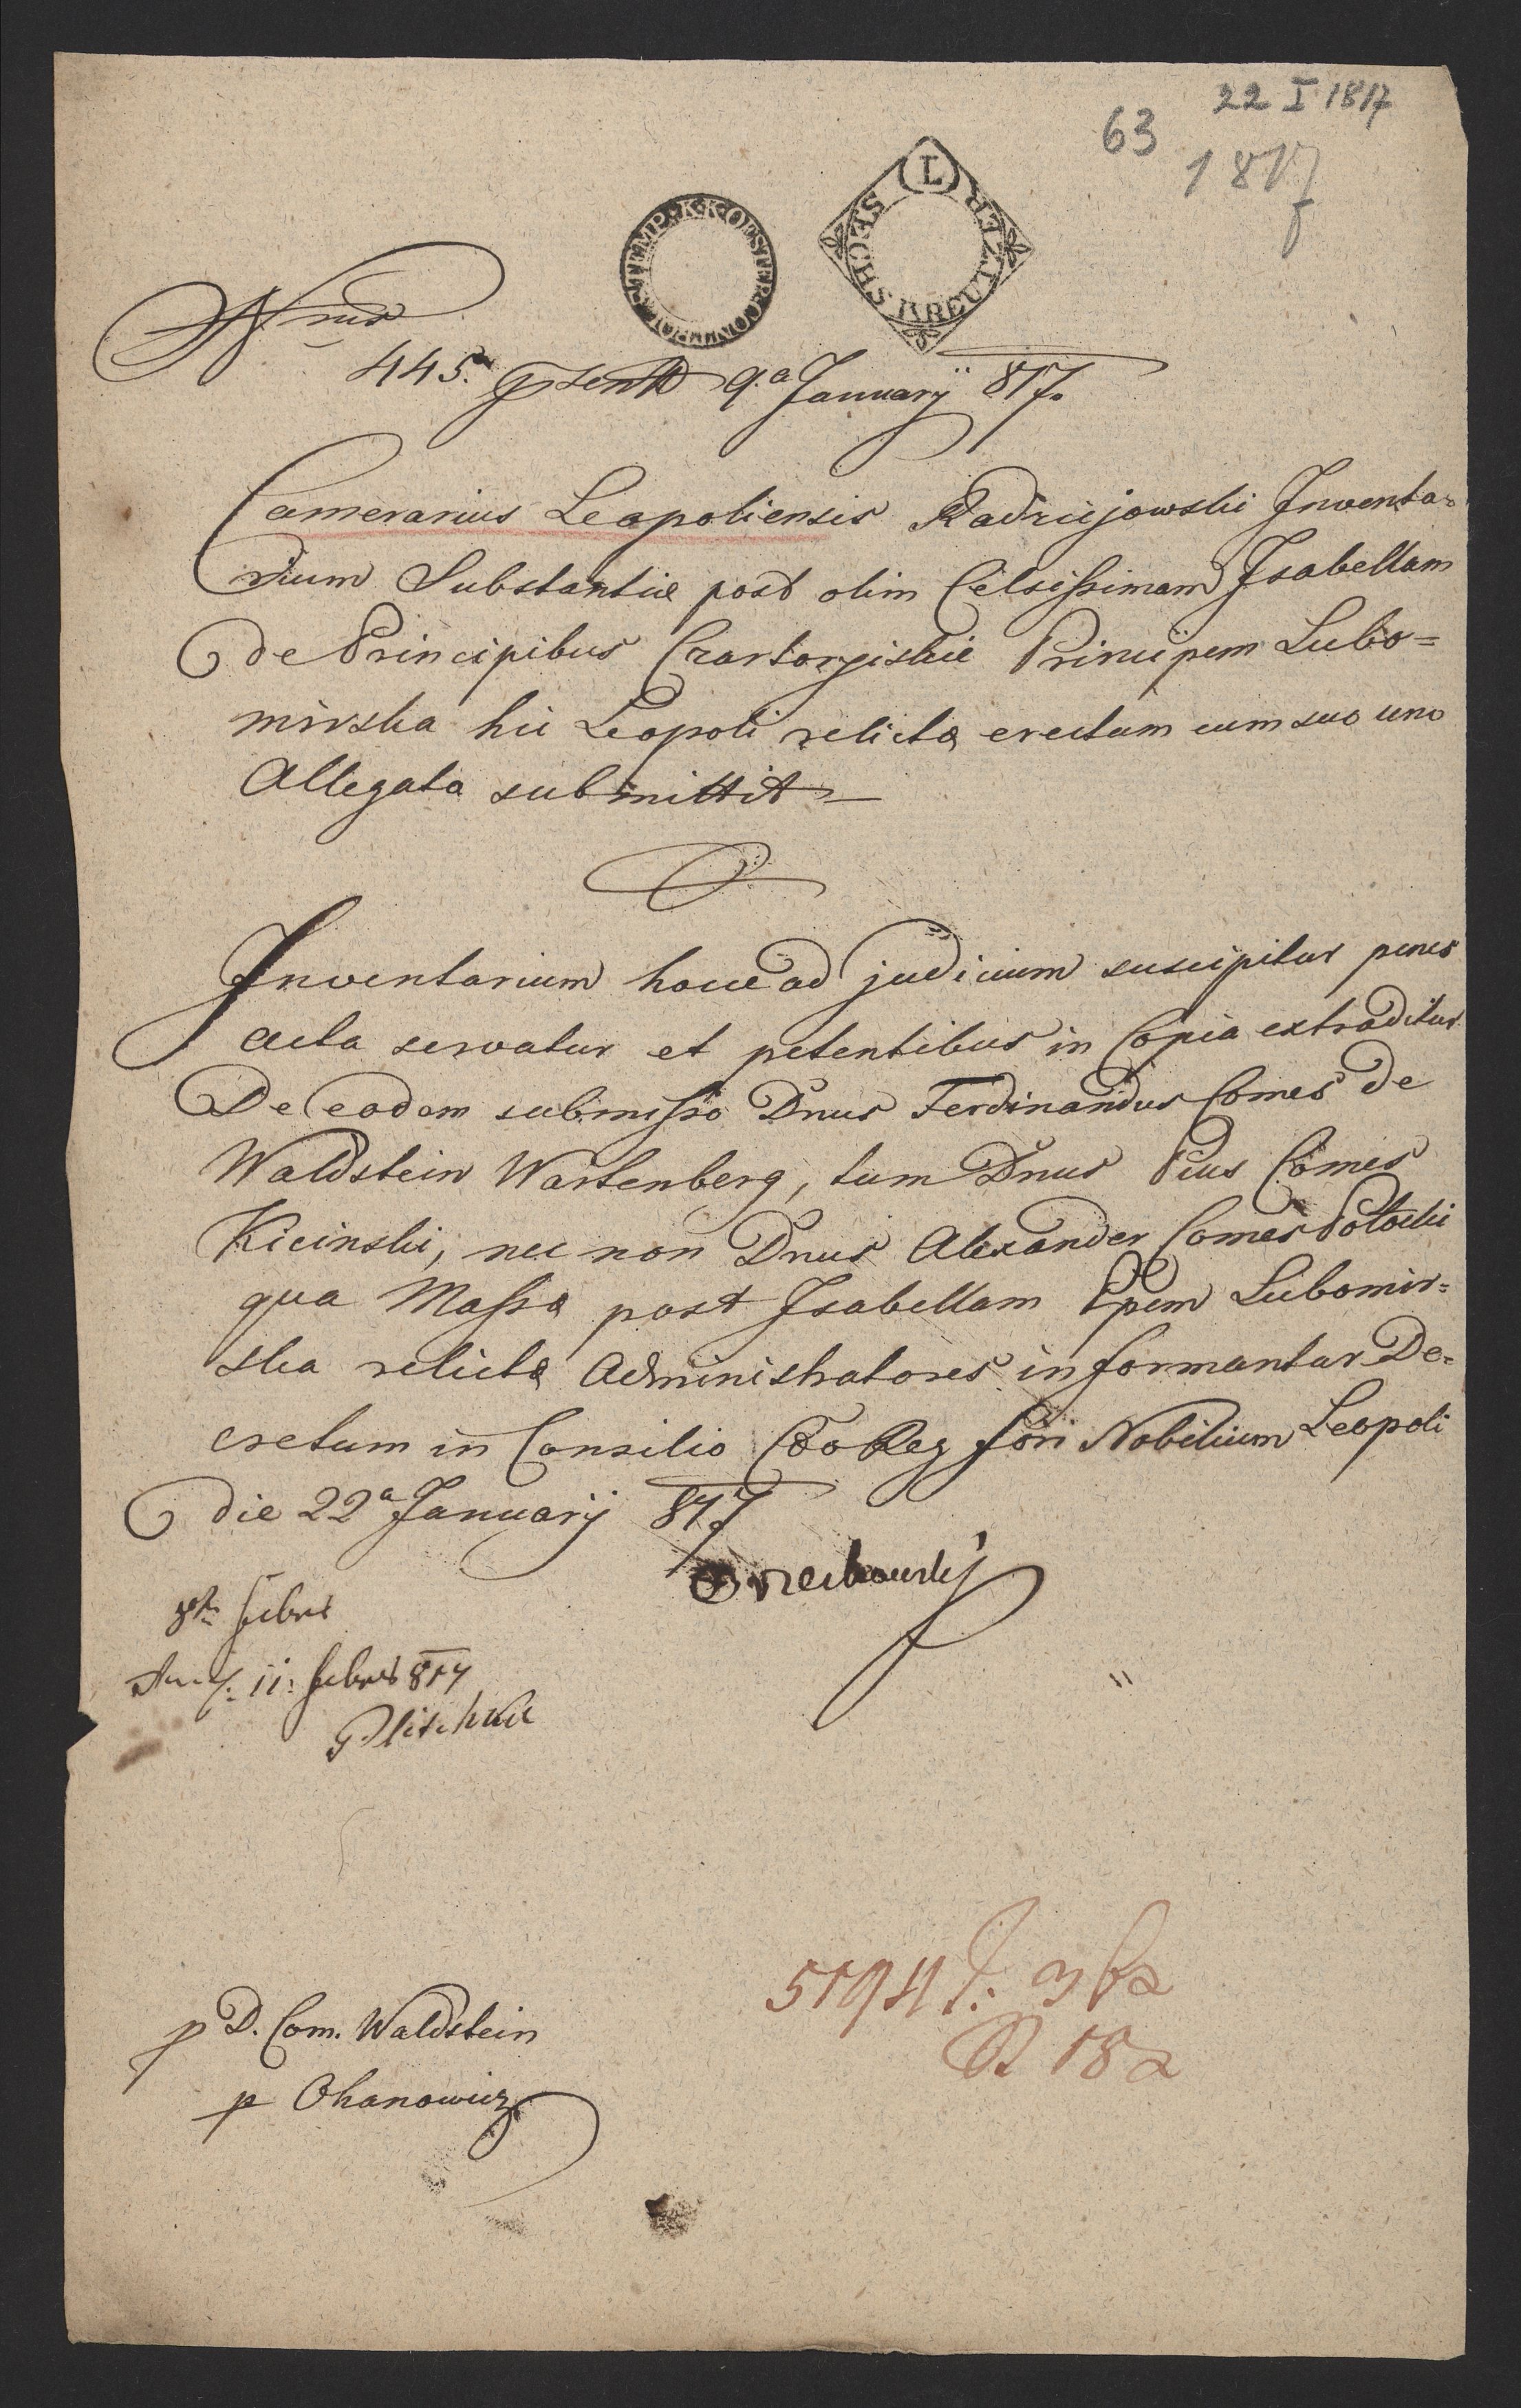 22 I 1817
63
1817
STEMP. K. K. OESTER.
L
SECHS KREUTZER
Nrus
445. psent 9.a Januarÿ 817.
Camerarius Leopoliensis Radziejowski Inventa=
rium Substantiæ post olim Celsissimam Isabellam
de Principibus Czartoryiskie Principem Lubo=
mirska hic Leopoli relictæ erectum cum suo uno
Allegato submittit
Inventarium hocce ad judicium suscipitur penes
acta servatur et petentibus in Copia extraditur
De eodem submisso Dnus Ferdinandus Comes de
Waldstein Wartenberg, tum Dnus Pius Comes
Kicinski, nec non Dnus Alexander Comes Potocki
qua Massæ post Isabellam Ppem Lubomir=
ska relictæ Administratores informantur De=
cretum in Consilio Cæo Reg fori Nobilium Leopoli
die 22a Januarij 817
febris
11. febris 817
p D. Com. Waldstein
p Ohanowicz